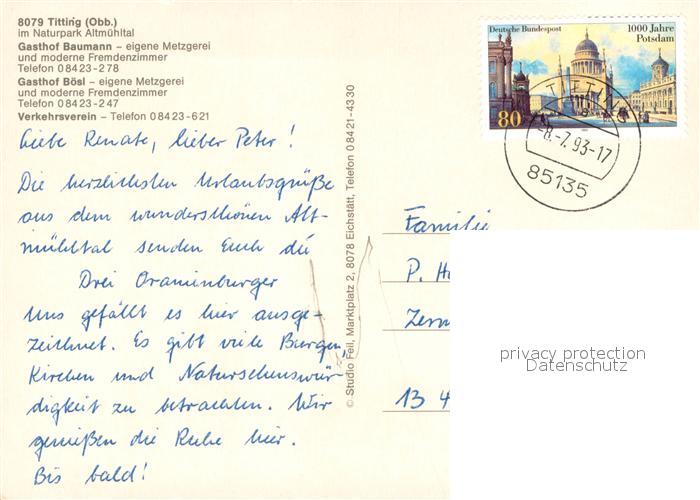 8079 Titting (Obb.)
im Naturpark Altmühltal
Gasthof Baumann – eigene Metzgerei
und moderne Fremdenzimmer
Telefon 08423-278
Gasthof Bösl – eigene Metzgerei
und moderne Fremdenzimmer
Telefon 08423-247
Verkehrsverein – Telefon 08423-621
Liebe Renate, lieber Peter!
Die herzlichsten Urlaubsgrüße
aus dem wunderschönen Alt-
mühltal senden Euch die
Drei Oranienburger
Uns gefällt es hier ausge-
zeichnet. Es gibt viele Burgen,
Kirchen und Naturschenswür-
digkeit zu betrachten. Wir
genießen die Ruhe hier.
Bis bald!
© Studio Feil, Marktplatz 2, 8078 Eichstätt, Telefon 08421-4330
Deutsche Bundespost
1000 Jahre
Potsdam
80
TITTING
-8.-7.93-17
85135
Familie
P. H
Zern
13 4
privacy protection
Datenschutz